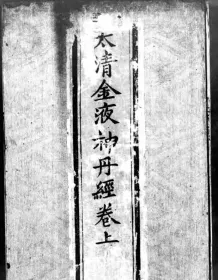 太清金液神丹經卷上